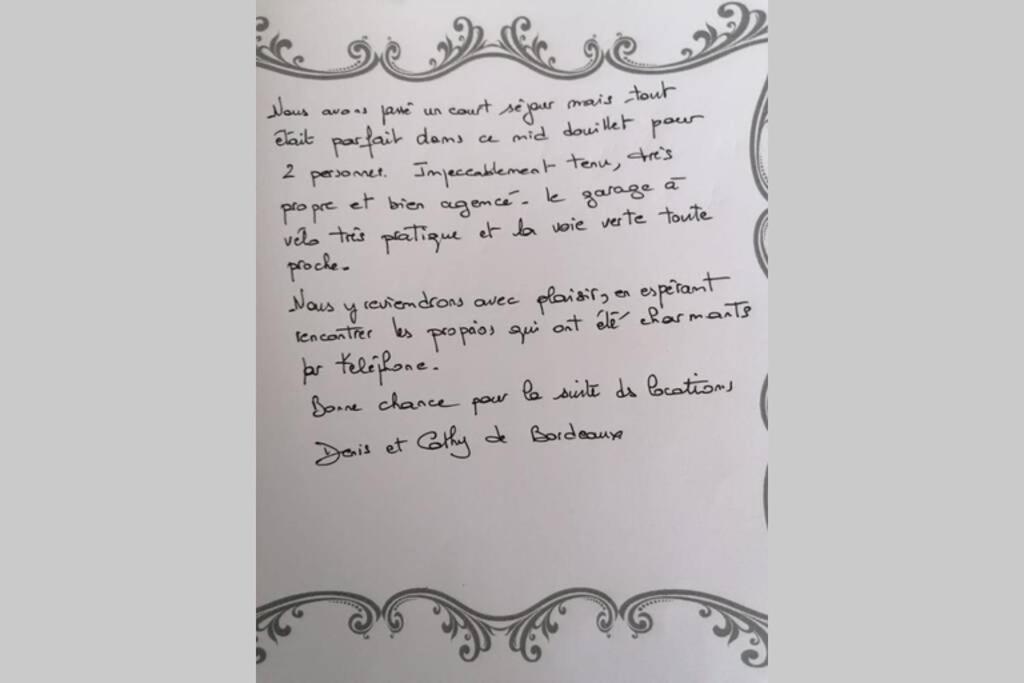 Nous avons passé un court séjour mais tout
était parfait dans ce nid douillet pour
2 personnes. Impeccablement tenu, très
propre et bien agencé. le garage à
vélo très pratique et la voie verte toute
proche.
Nous y reviendrons avec plaisir, en espérant
rencontrer les propios qui ont été charmants
par téléphone.
Bonne chance pour la suite ds locations
Denis et Cathy de Bordeaux